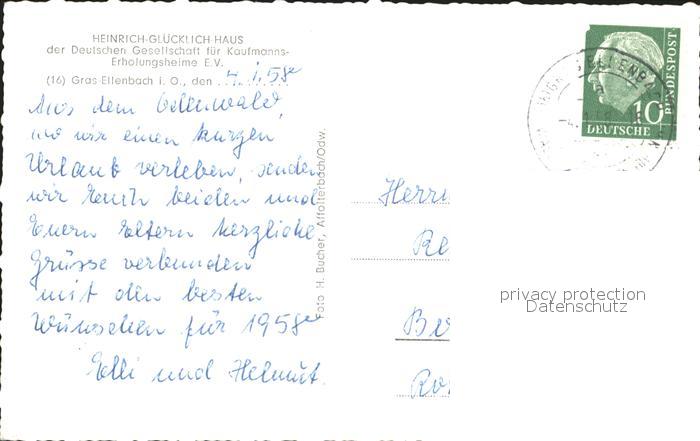 HEINRICH-GLÜCKLICH-HAUS
der Deutschen Gesellschaft für Kaufmanns-
Erholungsheime E.V.
(16) Gras-Ellenbach i. O., den 4.1.58
Aus dem Odenwald,
wo wir einen kurzen
Urlaub verleben, senden
wir Euch beiden und
Euern Eltern herzliche
Grüsse verbunden
mit den besten
Wünschen für 1958
Elli und Helmut.
Foto H. Bucher, Affolterbach/Odw.
DEUTSCHE
BUNDESPOST
10
ELLENBACH
Herrn
Re
Be
Ro
privacy protection
Datenschutz